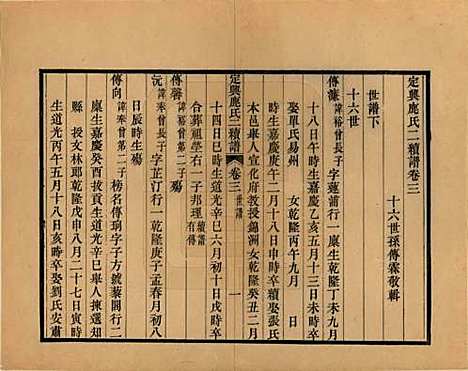 定興鹿氏二續譜卷三
十六世孫傳霖敬輯
世譜下
十六世
傳謙 諱裕曾長子 字蓮蒲行一廩生乾隆丁未九月
十八日午時生嘉慶乙亥五月十三日未時卒
娶單氏易州 女乾隆丙午九月 日
時生嘉慶庚午二月十八日申時卒續娶張氏
本邑舉人宣化府教授錦洲女乾隆癸丑二月
定興鹿氏二續譜 卷三 世譜 一
十四日巳時生道光辛巳六月初十日戌時卒
合葬祖塋右一子邦理 續譜有傳
傳馨 諱裕曾第二子 殤
沅 諱奉曾長子 字芷汀行一乾隆庚子孟春月初八
日辰時生殤
傳向 諱奉曾第二子 榜名傳珦字子方號藜閣行二
廩生嘉慶癸酉拔貢生道光辛巳舉人揀選知
縣 授文林郎乾隆戊申八月二十七日寅時
生道光丙午五月十八日亥時卒娶劉氏安肅